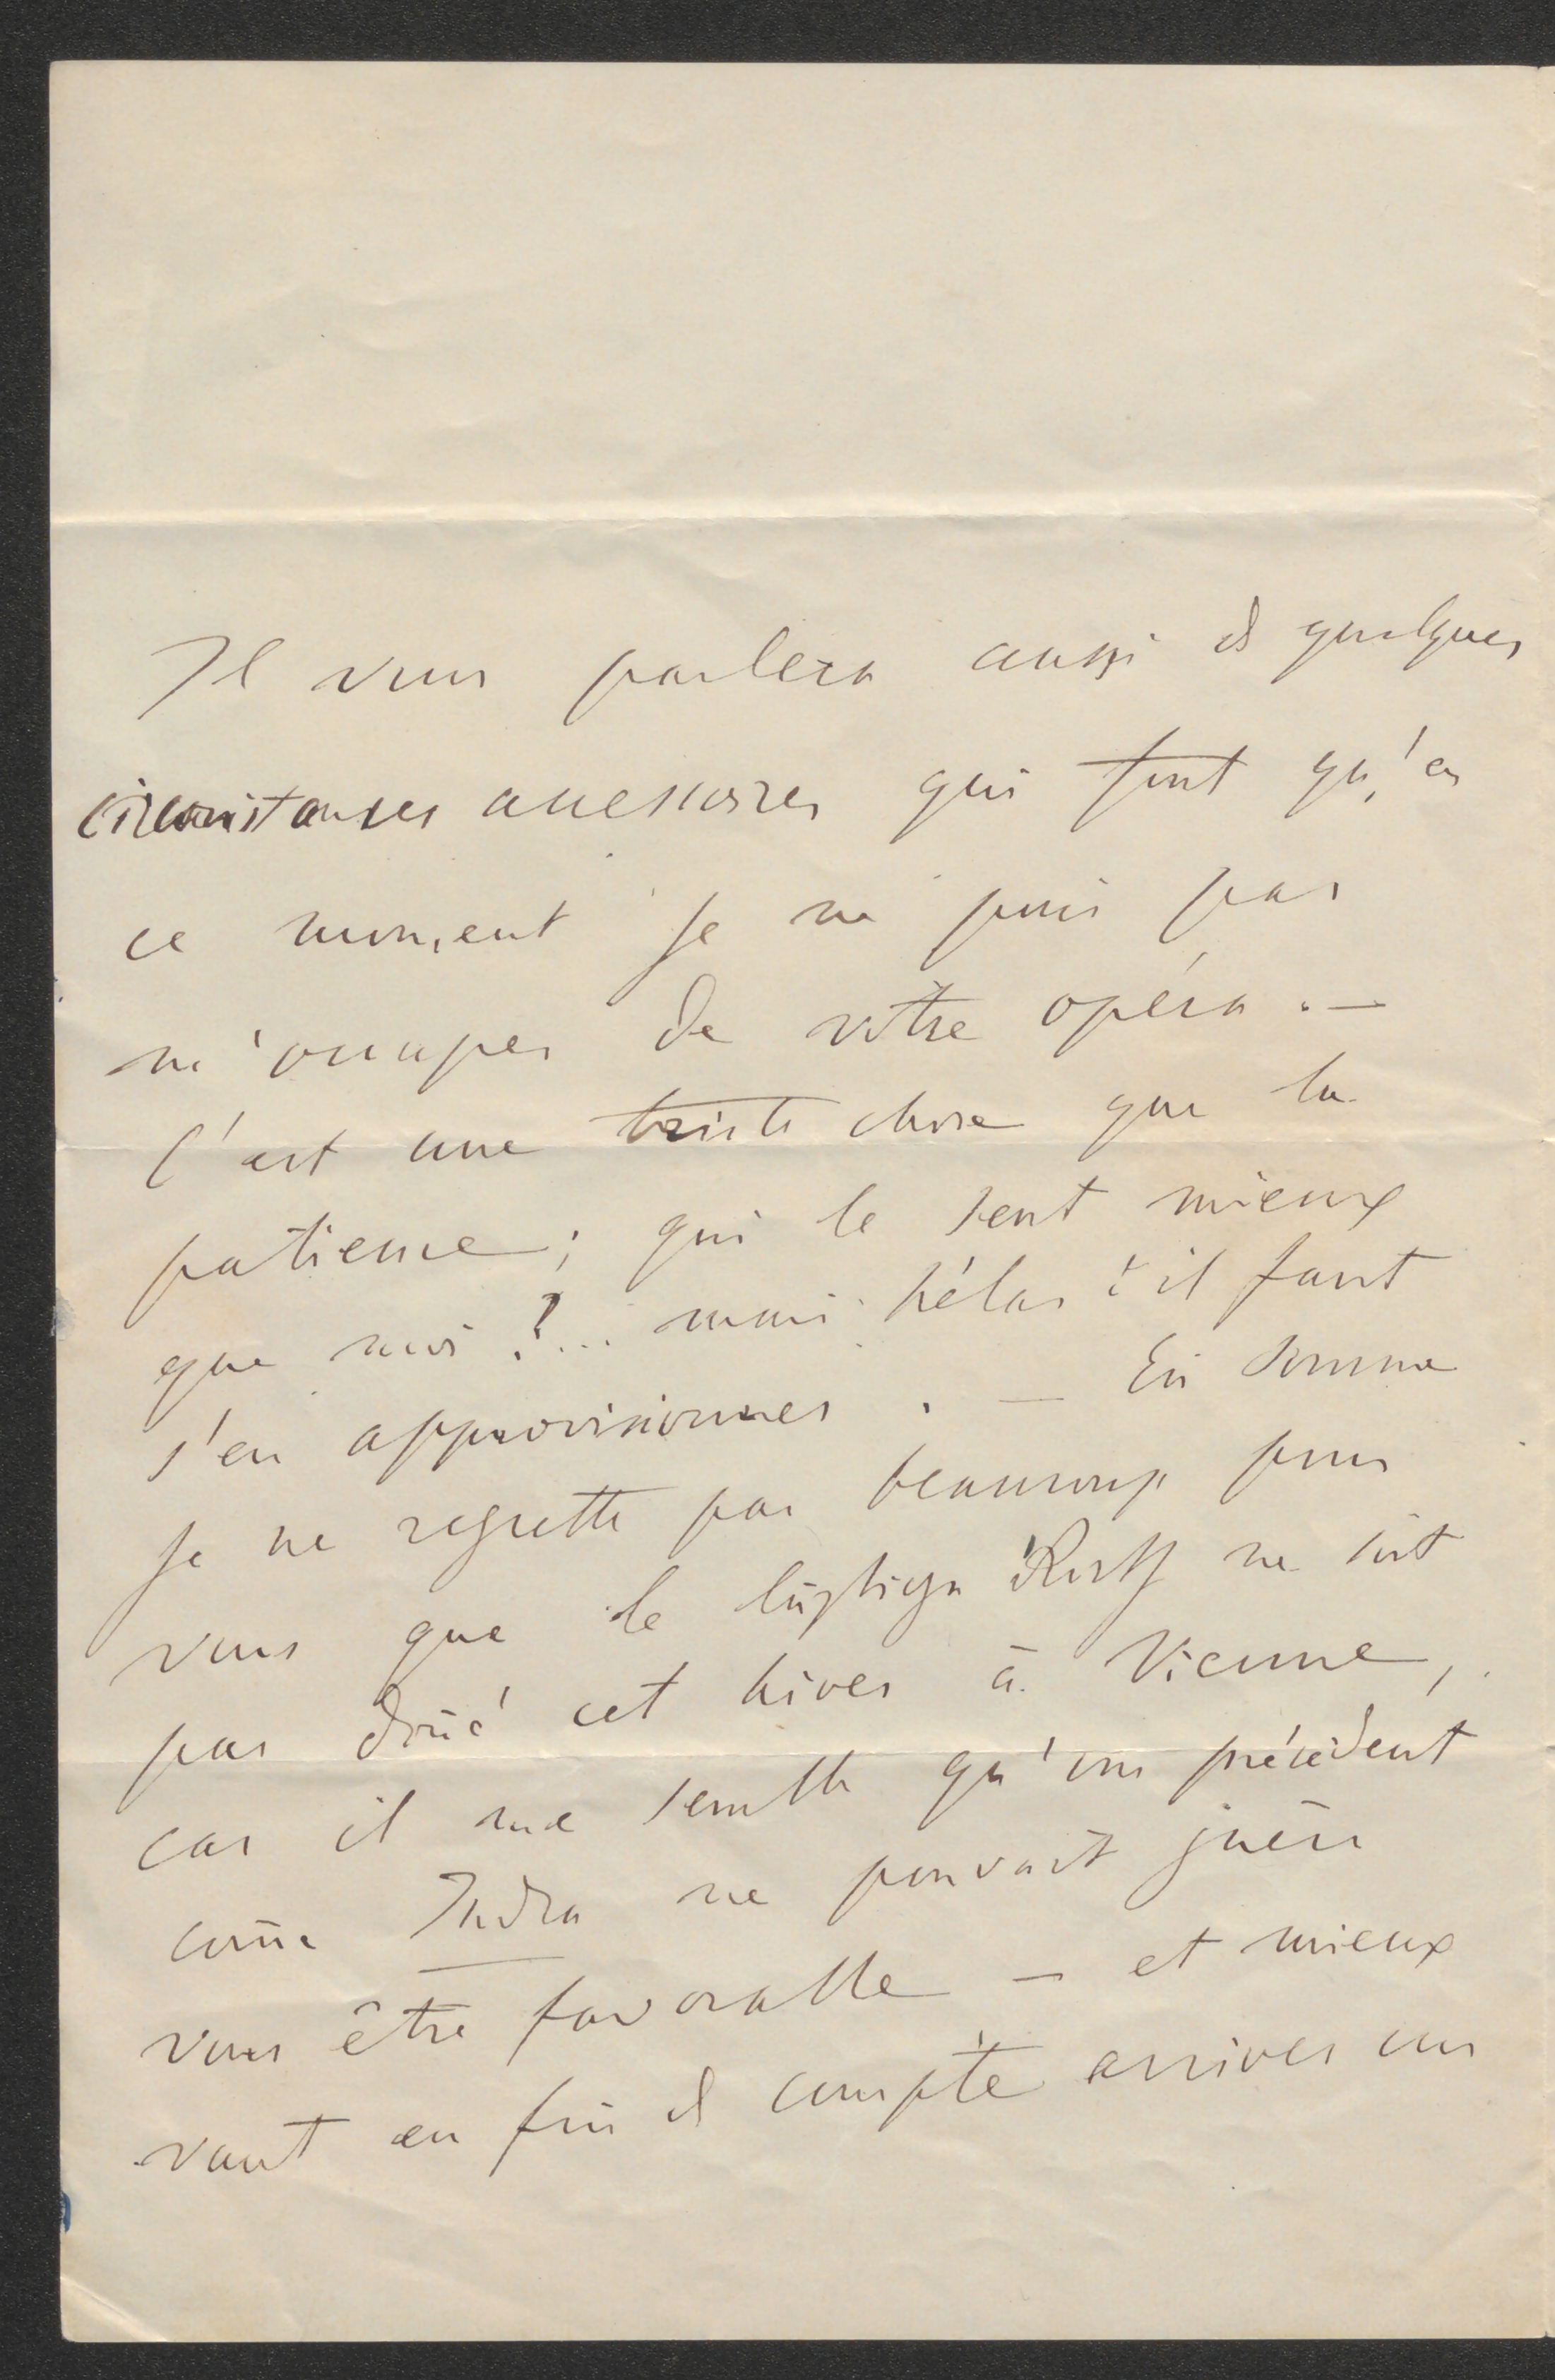 Il vous parlera aussi d quelques
circonstances accessoires qui font qu'en
ce moment je ne puis pas
m'occuper de votre opéra. —
C'est une triste chose que la
patience; qui le sent mieux
que moi?... mais hélas! il faut
s'en approvisionner. — En somme
je ne regrette pas beaucoup pour
vous que le lustige Rath ne soit
pas doñé cet hiver à Vienne,
car il me semble qu'un précédent
com̃e Indra ne pouvait guère
vous être favorable — et mieux
vaut en fin d compte arriver un